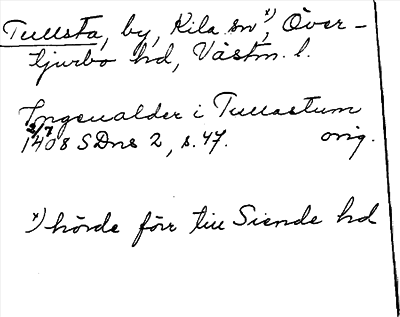 Tullsta, by, Kila sn x), Över-
tjurbo hd, Västm. l.
Ingeualder i Tullastum
2/7 1408 SDns 2, s. 47. orig.
x) hörde förr till Siende hd